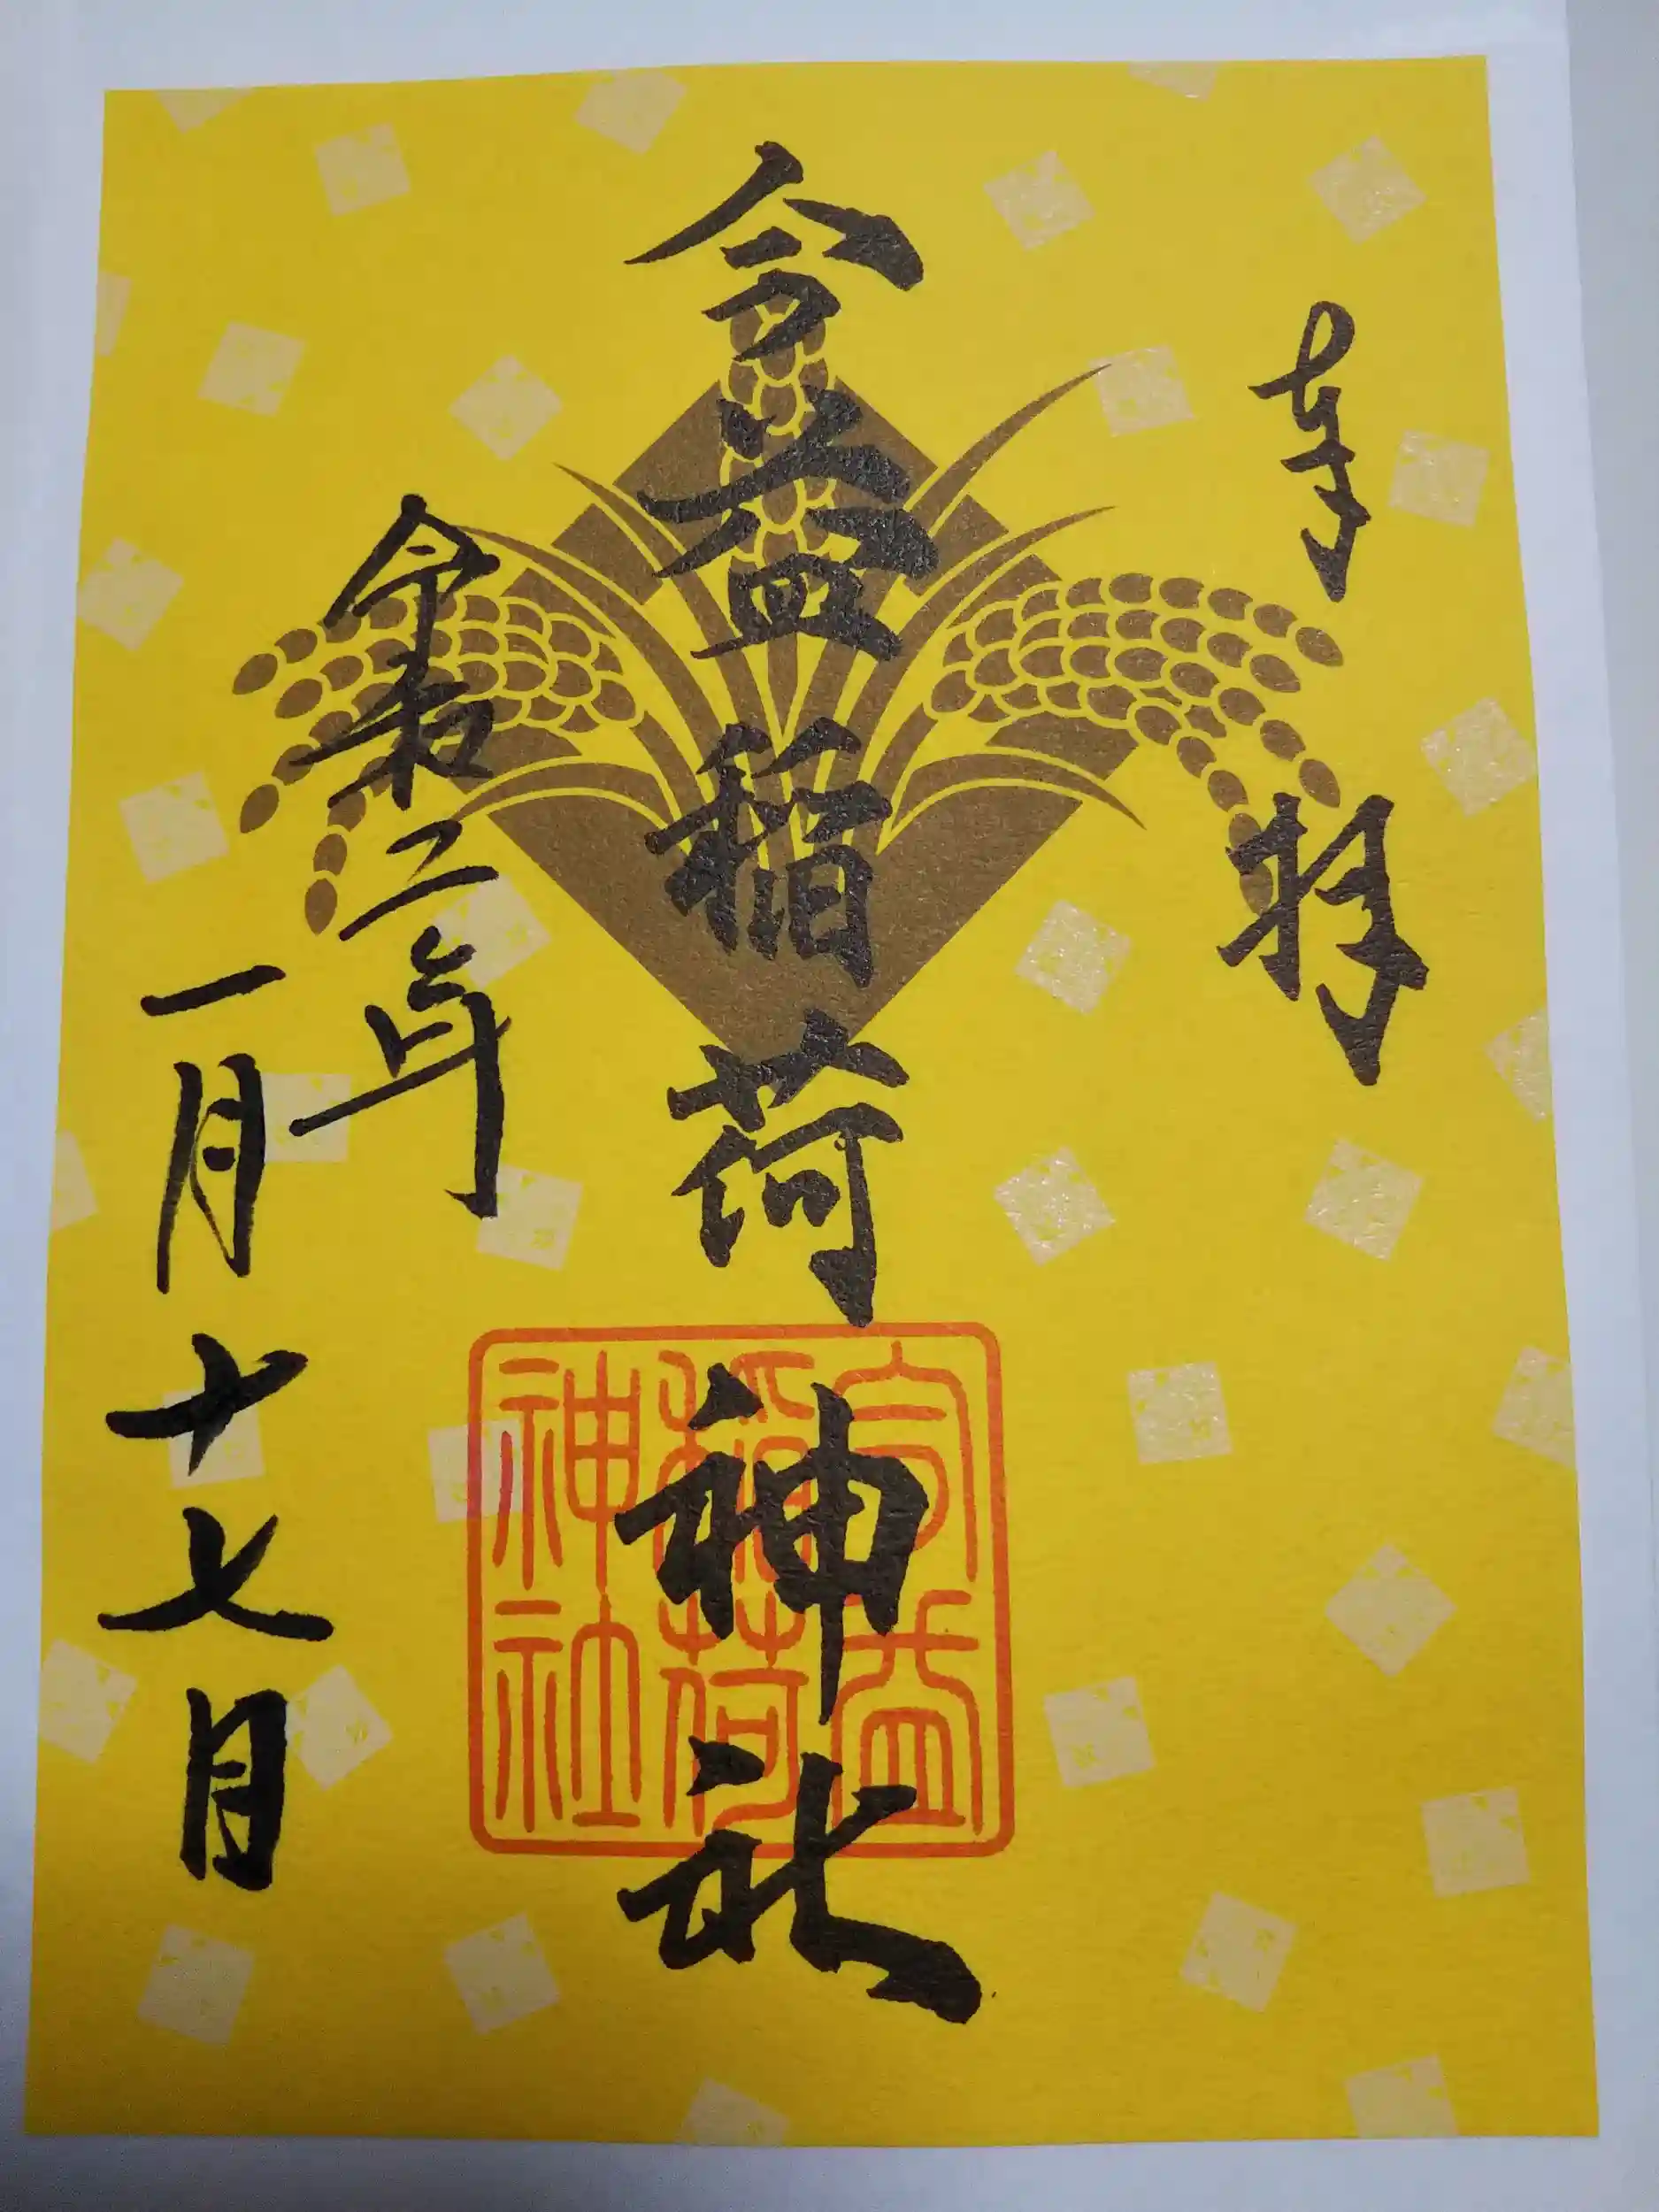 奉拝
今益稲荷神社
令和三年
一月十七日
今益
稲荷
神社